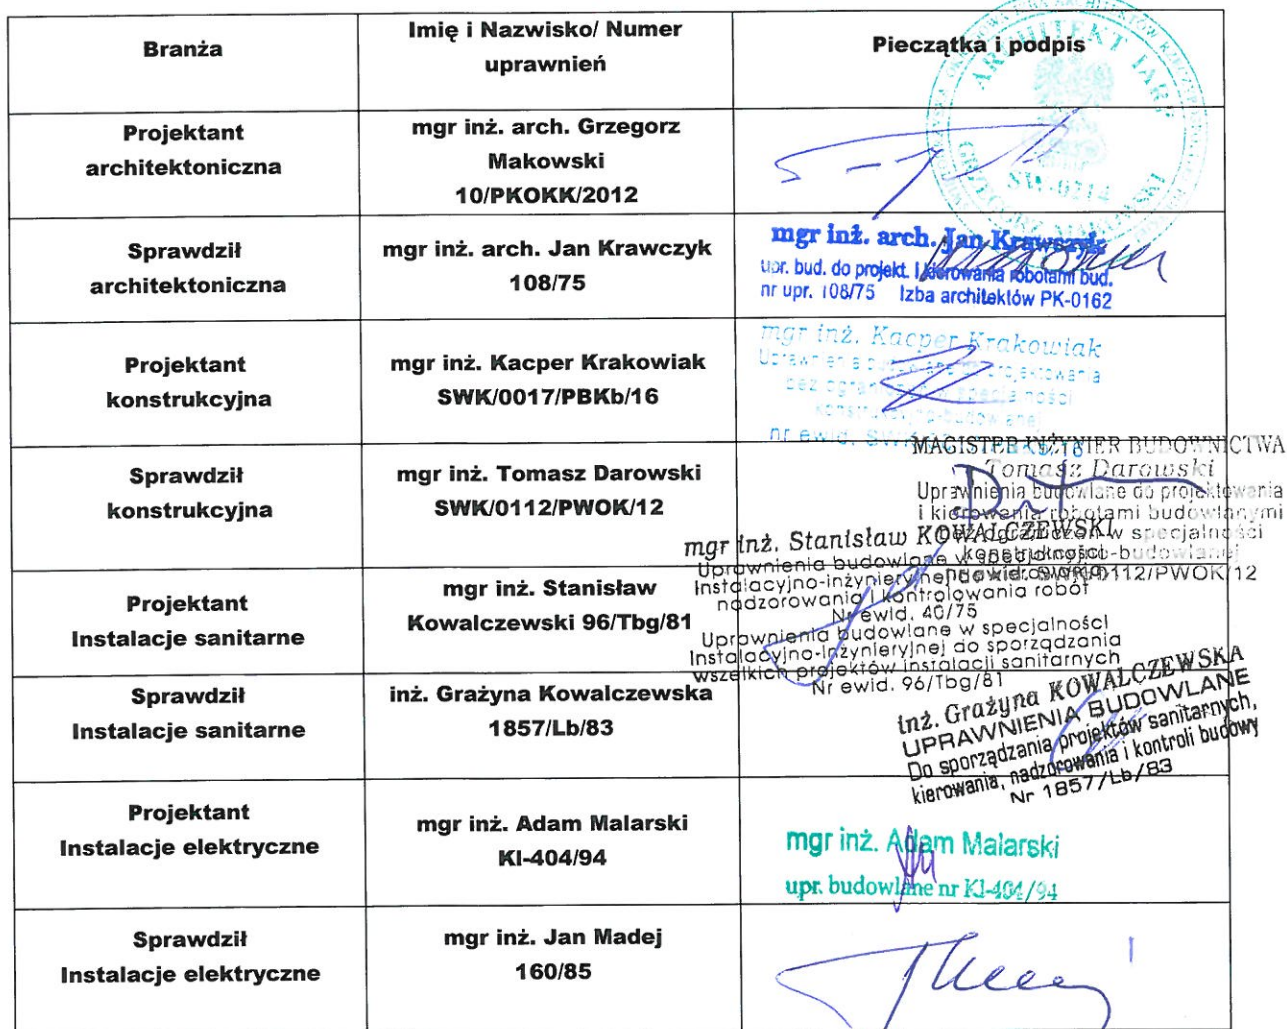 Branża
Imię i Nazwisko/ Numer
uprawnień
Pieczątka i podpis
ARCHITEKT IARP
GRZEGORZ MAKOWSKI
Projektant
architektoniczna
mgr inż. arch. Grzegorz
Makowski
10/PKOKK/2012
Sprawdził
architektoniczna
mgr inż. arch. Jan Krawczyk
108/75
mgr inż. arch. Jan Krawczyk
upr. bud. do projekt. i kierowania robotami bud.
nr upr. 108/75 Izba architektów PK-0162
Projektant
konstrukcyjna
mgr inż. Kacper Krakowiak
SWK/0017/PBKb/16
mgr inż. Kacper Krakowiak
Uprawnienia budowlane do projektowania
bez ograniczeń w specjalności
konstrukcyjno-budowlanej
nr ewid.
Sprawdził
konstrukcyjna
mgr inż. Tomasz Darowski
SWK/0112/PWOK/12
MAGISTER INŻYNIER BUDOWNICTWA
Tomasz Darowski
Uprawnienia budowlane do projektowania
i kierowania robotami budowlanymi
bez ograniczeń w specjalności
konstrukcyjno-budowlanej
0112/PWOK/12
Projektant
Instalacje sanitarne
mgr inż. Stanisław
Kowalczewski 96/Tbg/81
mgr inż. Stanisław KOWALCZEWSKI
Uprawnienia budowlane w specjalności
Instalacyjno-inżynieryjnej do kierowania,
nadzorowania i kontrolowania robót
Nr ewid. 40/75
Uprawnienia budowlane w specjalności
Instalacyjno-inżynieryjnej do sporządzania
wszelkich projektów instalacji sanitarnych
Nr ewid. 96/Tbg/81
Sprawdził
Instalacje sanitarne
inż. Grażyna Kowalczewska
1857/Lb/83
inż. Grażyna KOWALCZEWSKA
UPRAWNIENIA BUDOWLANE
Do sporządzania projektów sanitarnych,
kierowania, nadzorowania i kontroli budowy
Nr 1857/Lb/83
Projektant
Instalacje elektryczne
mgr inż. Adam Malarski
KI-404/94
mgr inż. Adam Malarski
upr. budowlane nr KI-404/94
Sprawdził
Instalacje elektryczne
mgr inż. Jan Madej
160/85